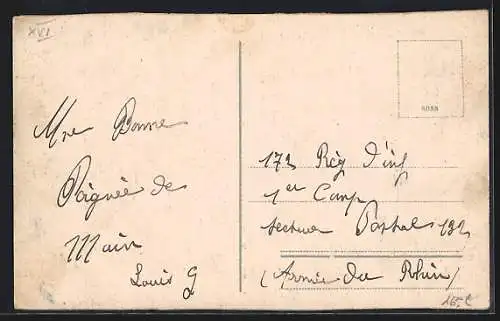 XVI
Une Bonne
Poignée de
Main
Louis G
8088
172 Rég d'inf
1er Comp
secteur Postal 192
(Armée du Rhin)